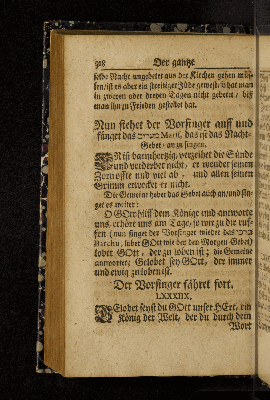 918 Der gantze
selbe Nacht ungebetet aus der Kirchen gehen müs-
sen/ ist es aber ein streitiger Jüde gewest/ so hat man
in zweyen oder dreyen Tagen nicht gebetet/ biß
man ihn zu Frieden gestellet hat.
Nun stehet der Vorsinger auff und
fänget das מעריב Maarif, das ist das Nacht-
Gebet/ an zu singen.
ER ist barmhertzig/ verzeihet die Sünde
und verderbet nicht/ er wendet seinen
Zorn offte und viel ab/ und allen seinen
Grimm erwecket er nicht.
Die Gemeine hebet das Gebet auch an/ und sin-
get es weiter:
O GOtt hilff dem Könige und antworte
uns, erhöre uns am Tage/ so wir zu dir ruf-
fen (nun singet der Vorsinger wieder das ברכו
Barchu, lobet GOtt wie bey den Morgen Gebet)
lobet GOtt, der zu loben ist; die Gemeine
antwortet; Gelobet sey GOtt, der immer
und ewig zu loben ist.
Der Vorsinger fähret fort.
LXXXIIX.
GElobet seyst du GOtt unser HErr, ein
König der Welt, der du durch dein
Wort